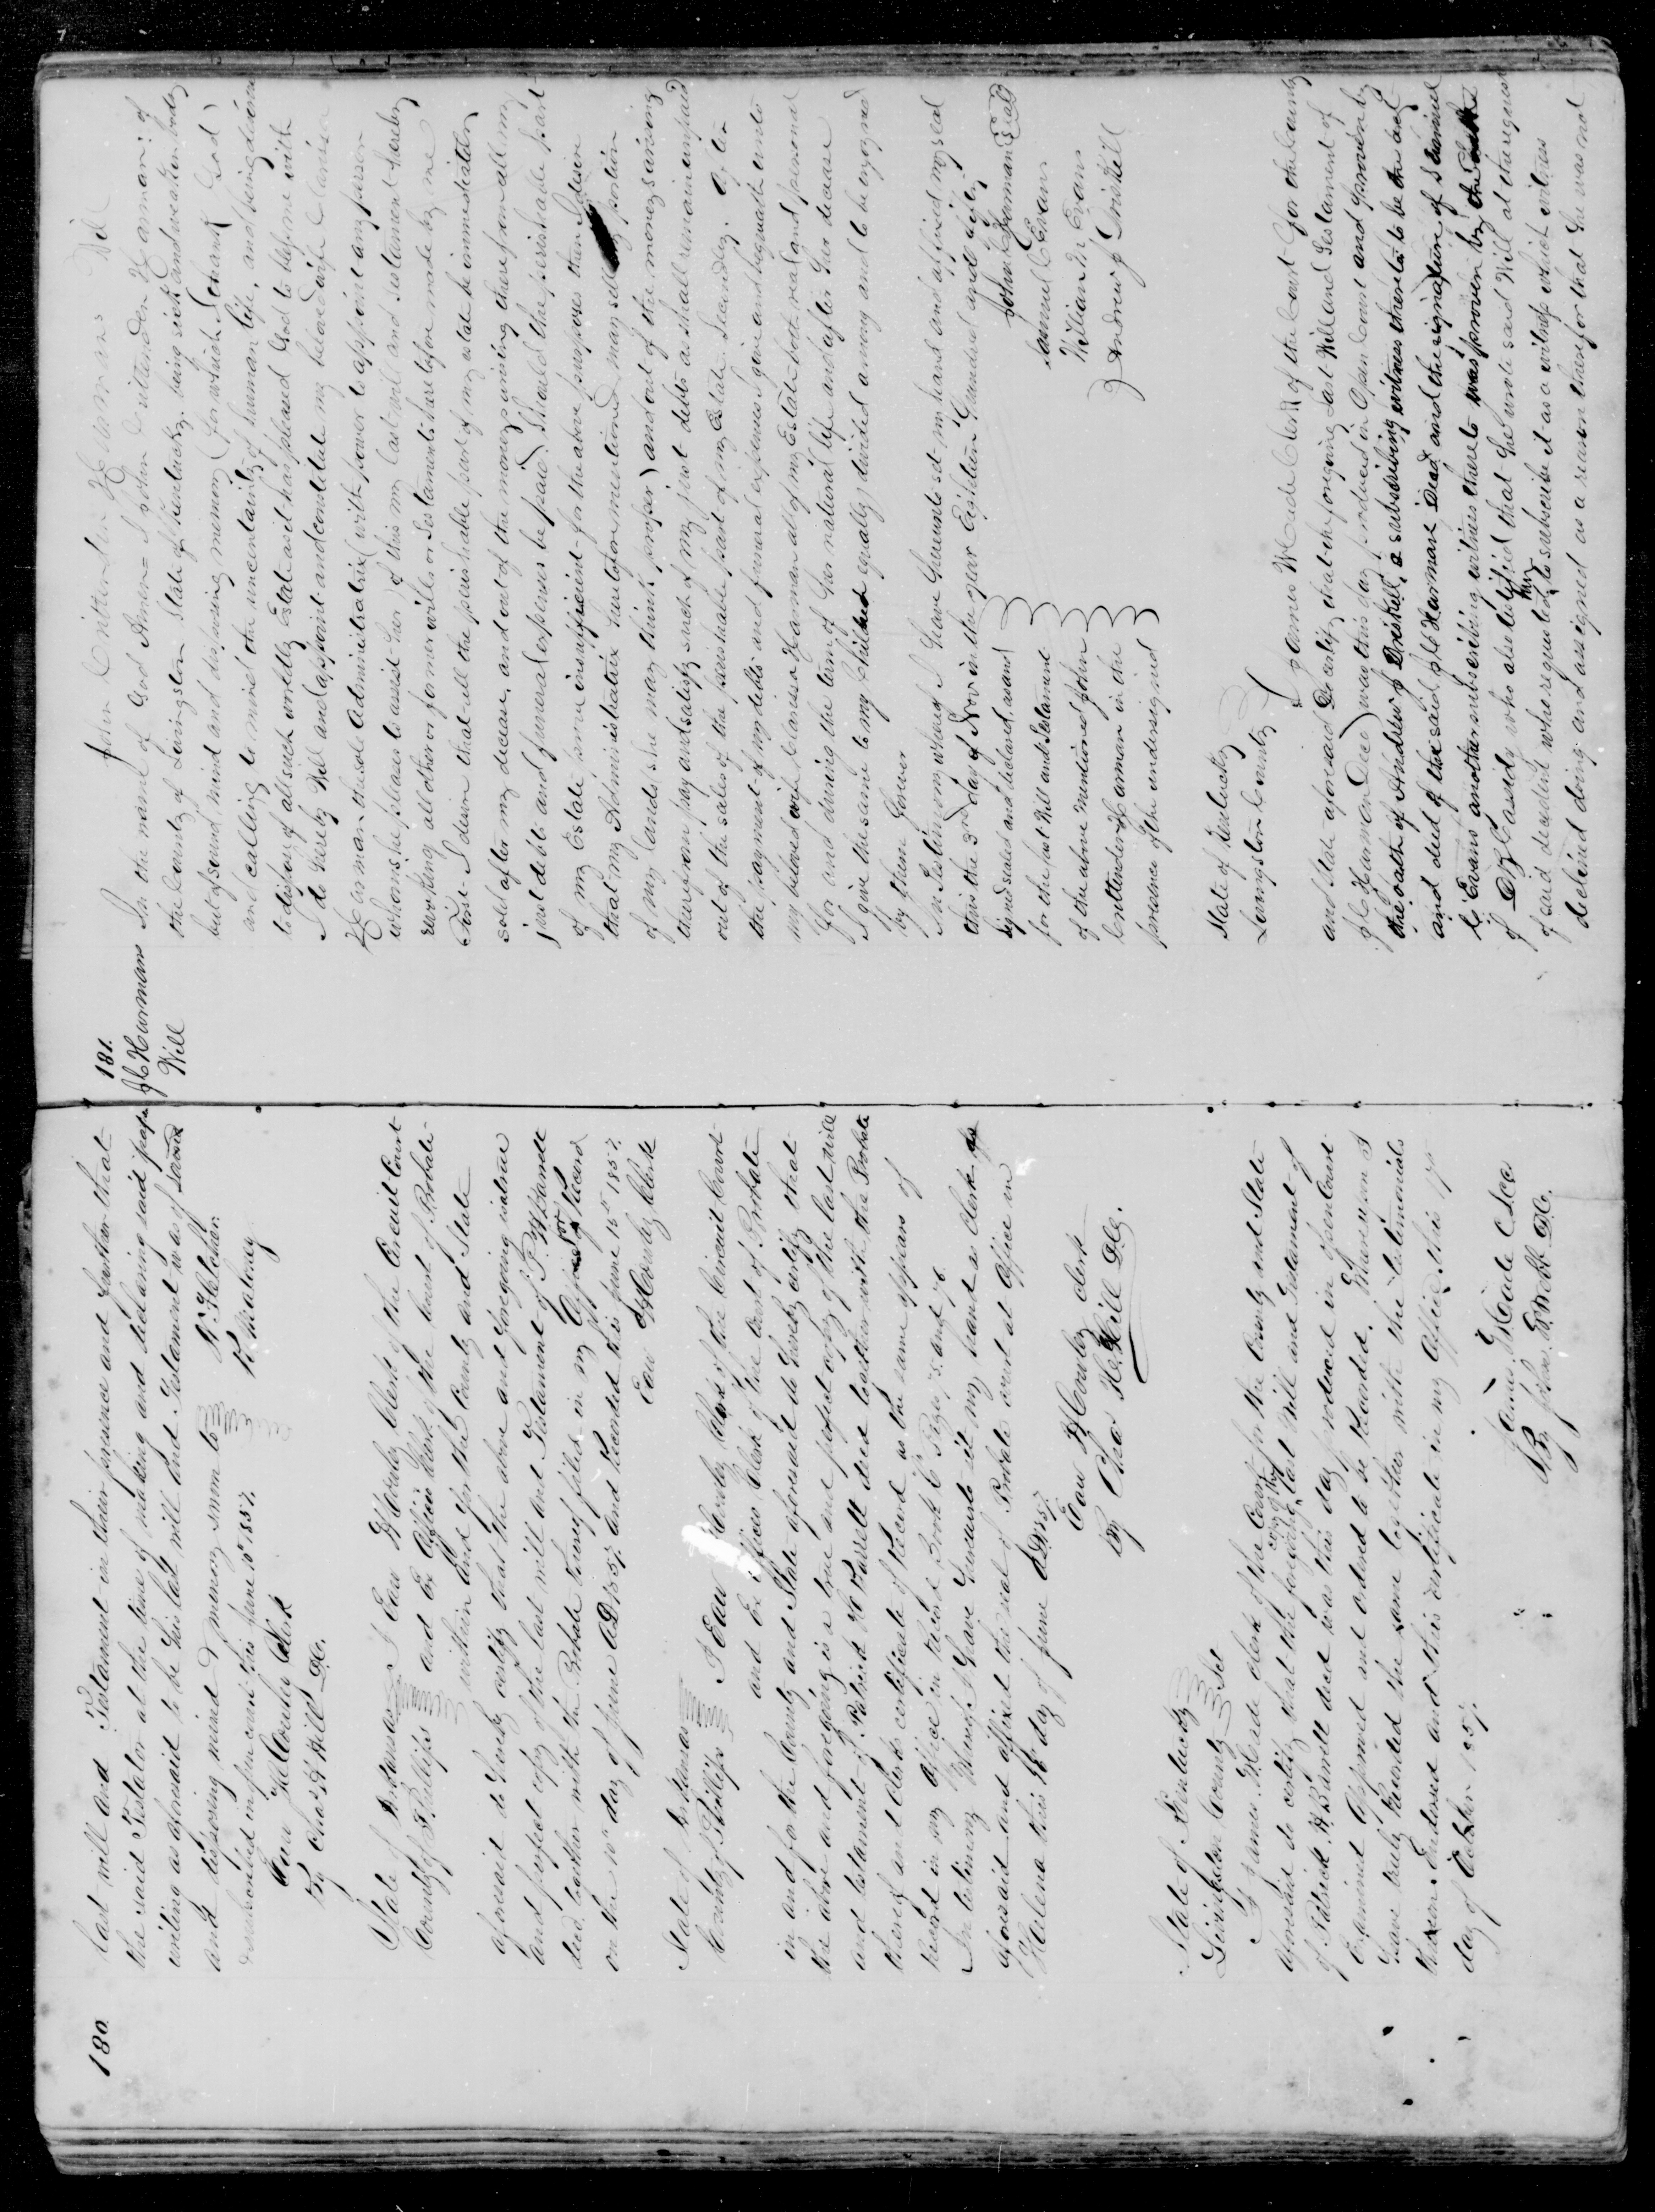 180
last will and Testament in their presence and further that
the said Testator at the time of making and declaring said paper
writing as aforesaid to be his last will and Testament was of sound
and disposing mind & memory sworn to
& subscribed before me this June 10th 1857.
K Maloney
Eau H Cowley Clerk
By Chas H Hill D.C.
State of Arkansas I Eau H Cowley Clerk of the Circuit Court
County of Phillips and Ex Officio Clerk of the Court of Probate
within and for the County and State
aforesaid do hereby certify that the above and foregoing is a true
and perfect copy of the last will and Testament of P. H. Barrett
decd together with the Probate thereof filed in my Office for Record
on the 10th day of June AD 1857 and Recorded this June 15th 1857.
Eau H Cowley Clerk
State of Arkansas I Eau H Cowley Clerk of the Circuit Court
County of Phillips and Ex Officio Clerk of the Court of Probate
in and for the County and State aforesaid do hereby certify that
the above and foregoing is a true and perfect copy of the last will
and testament of Patrick H Barrett decd together with the Probate
thereof and Clerks certificate of Record as the same appears of
Record in my Office in Record Book C Page 75 and 76.
In testimony Whereof I have hereunto set my hand as Clerk
aforesaid and affixed the seal of Probate court at Office in
Helena this 16th day of June AD 1857.
Eau H Cowley Clerk
By Chas H. Hill D.C.
State of Kentucky
Livingston County Sct
I James W. Wade clerk of the Court for the County and State
aforesaid do certify that the foregoing copy of the last Will and Testament of
of Patrick H. Barrett decd was this day produced in open Court
Examined Approved and ordered to be Recorded. Whereupon I
have truly Recorded the same together with the testimonials
thereon Endorsed and this certificate in my Office this
day of October 1857.
By John D. Webb D.C.
181.
Jno C Harmans
Will
John Crittenden Harmans Will
In the name of God Amen I John Crittenden Harman of
the County of Livingston State of Kentucky being sick and weak in body
but of sound mind and disposing memory (for which I thank God)
and calling to mind the uncertainty of human life, and being desirous
to dispose of all such worldly Estate as it has pleased God to bless me with
I do hereby Will and appoint and constitute my beloved wife Clarisa
Harman the sole Administratrix with power to appoint any person
whom she pleases to assist her of this my last will and testament hereby
revoking all other or former wills or testaments heretofore made by me
First I desire that all the perishable part of my estate be immediately
sold after my decease, and out of the money arising therefrom all my
just debts and funeral expenses be paid) Should the perishable part
of my Estate prove insufficient for the above purposes then I desire
that my Administratrix heretofore mentioned may sell any portion
of my lands (she may think proper) and out of the money arising
therefrom pay and satisfy such of my just debts as shall remain unpaid
out of the sales of the perishable part of my Estate. Secondly. After
the payment of my debts and funeral expenses I give and bequeath unto
my beloved wife Clarisa Harman all of my Estate both real and personal
for and during the term of her natural life and after her decease
I give the same to my children equally divided among and to be enjoyed
by them forever
In Testimony whereof I have hereunto set my hand and affixed my seal
this the 3rd day of Nov in the year Eighteen Hundred and fifty
Signed sealed and declared as and John C Harman Seal
for the last Will and Testament Samuel C Evans
of the above mentioned John William N Evans
Crittenden Harman in the Andrew J Driskill
presence of the undersigned
State of Kentucky
Livingston County
I James W Wade Clerk of the Court for the County
and State aforesaid Do Certify that the foregoing Last Will and Testament of
J C Harman (Decd) was this day produced in Open Court and proven by
the oath of Andrew J Driskill, a subscribing witness thereto to be the act
and deed of the said J C Harman Decd and the signature of Samuel
C Evans another subscribing witness thereto was proven by the oath
of who also testified that he wrote said Will at the request
of said decedent who requested him to subscribe it as a witness which witness
declined doing and assigned as a reason therefor that he was no